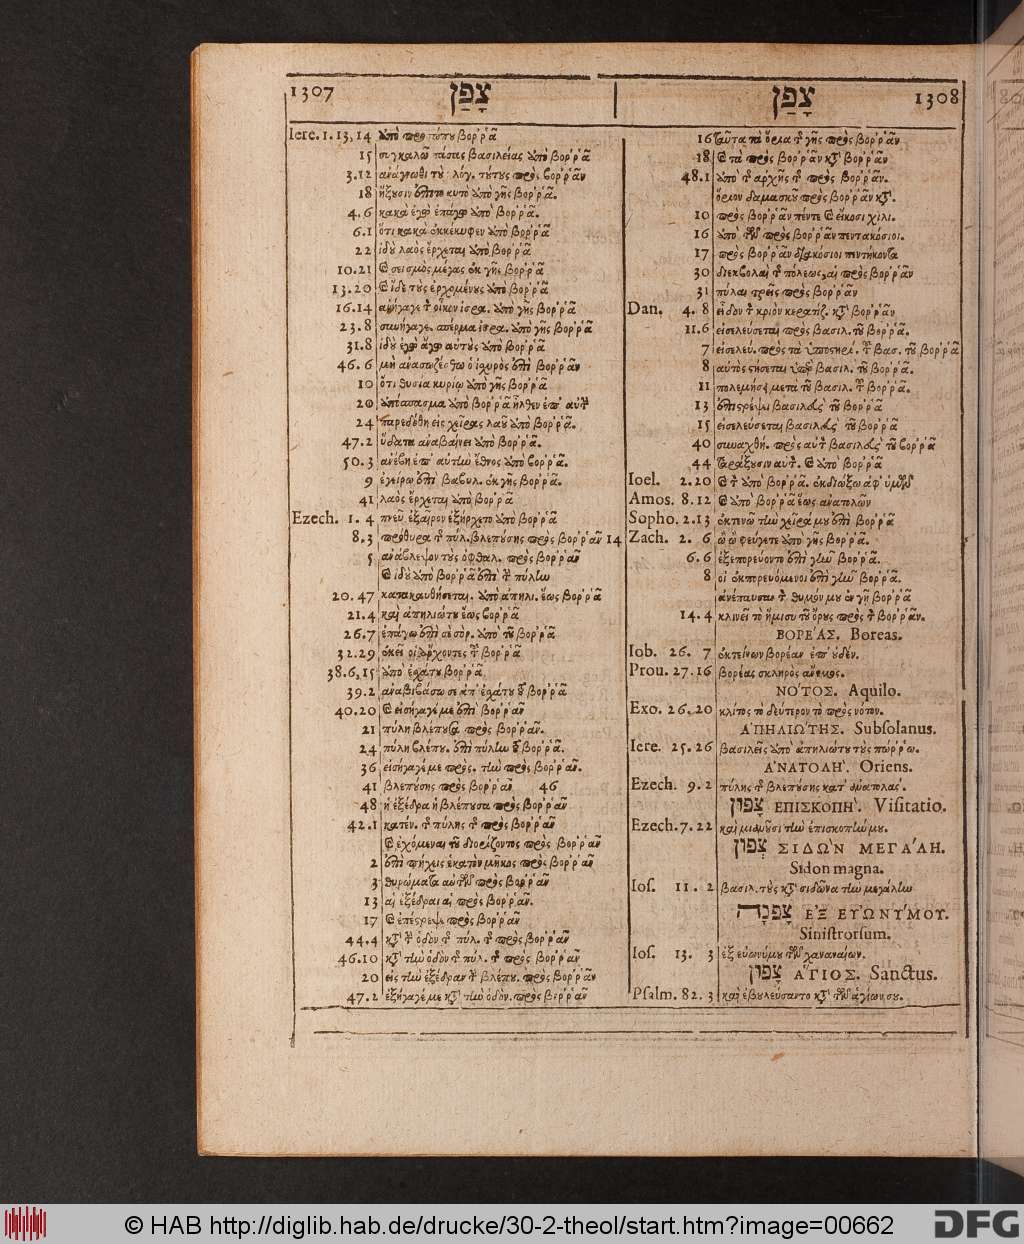 1307 צָפַן
Iere. 1. 13, 14 ὑπὸ προσώπου βοῤῥᾶ
15 συγκαλῶ πάσας βασιλείας ὑπὸ βοῤῥᾶ
3. 12 ἀνάγνωθι τοὺς λόγ. τούτους πρὸς βοῤῥᾶν
18 ἥξουσιν ἐπὶ τὸ αυτὸ ὑπὸ γῆς βοῤῥᾶ.
4. 6 κακὰ ἐγὼ ἐπάγω ὑπὸ βοῤῥᾶ.
6. 1 ὅτι κακὰ ἐκκέκυφεν ὑπὸ βοῤῥᾶ
22 ἰδοὺ λαὸς ἔρχεται ὑπὸ βοῤῥᾶ
10. 21 καὶ σεισμὸς μέγας ἐκ γῆς βοῤῥᾶ
13. 20 καὶ ἴδε τοὺς ἐρχομένους ὑπὸ βοῤῥᾶ
16. 14 ἀνήγαγε τὸν οἶκον ἰσρα. ὑπὸ γῆς βοῤῥᾶ
23. 8 συνήγαγε. σπέρμα ἰσρα. ὑπὸ γῆς βοῤῥᾶ
31. 8 ἰδοὺ ἐγὼ ἄγω αὐτοὺς ὑπὸ βοῤῥᾶ
46. 6 μὴ ἀνασωζέσθω ὁ ἰχυρὸς ἐπὶ βοῤῥᾶν
10 ὅτι θυσία κυρίῳ ὑπὸ γῆς βοῤῥᾶ
20 ὑπόσπασμα ὑπὸ βοῤῥᾶ ἦλθεν ἐπ' αὐτὴν
24 παρεδόθη εἰς χεῖρας λαοῦ ὑπὸ βοῤῥᾶ.
47. 2 ὕδατα ἀναβαίνει ὑπὸ βοῤῥᾶ.
50. 3 ἀνέβη ἐπ' αὐτὴν ἔθνος ὑπὸ βοῤῥᾶ.
9 ἐγείρω ἐπὶ βαβυλ. ἐκ γῆς βοῤῥᾶ.
41 λαὸς ἔρχεται ὑπὸ βοῤῥᾶ
Ezech. 1. 4 πνεῦ. ἐξαῖρον ἐξήρχετο ὑπὸ βοῤῥᾶ
8. 3 πρόθυρα τῆς πύλ. βλεπούσης πρὸς βοῤῥᾶν 14
5 ἀνάβλεψον τοὺς ὀφθαλ. πρὸς βοῤῥᾶν
καὶ ἰδοὺ ὑπὸ βοῤῥᾶ ἐπὶ τὴν πύλην
20. 47 κατακαυθήσεται. ὑπὸ ἀπηλι. ἕως βοῤῥᾶ
21. 4 καὶ ἀπηλιώτου ἕως βοῤῥᾶ
26. 7 ἐπάγω ἐπὶ σὲ σὸρ. ὑπὸ τοῦ βοῤῥᾶ
32. 29 ἐκεῖ οἱ ἄρχοντες τοῦ βοῤῥᾶ
38. 6, 15 ὑπὸ ἐχάτου βοῤῥᾶ
39. 2 ἀναβιβάσω σε ἀπ' ἐχάτου τοῦ βοῤῥᾶ
40. 20 καὶ εἰσήγαγέ με ἐπὶ βοῤῥᾶν
21 πύλη βλέπουσα πρὸς βοῤῥᾶν.
24 πύλη βλέπου. ἐπὶ πύλην τοῦ βοῤῥᾶ.
36 εἰσήγαγέ με πρὸς. τὴν πρὸς βοῤῥᾶν.
41 βλεπούσης πρὸς βοῤῥᾶν 46
48 ἡ ἐξέδρα ἡ βλέπουσα πρὸς βοῤῥᾶν
42. 1 κατέν. τῆς πύλης τῆς πρὸς βοῤῥᾶν
καὶ ἐχόμεναι τοῦ διορίζοντος πρὸς βοῤῥᾶν
2 ἐπὶ πήχεις ἑκατὸν μῆκος πρὸς βοῤῥᾶν
3 θυρώματα αὐτῶν πρὸς βοῤῥᾶν
13 αἱ ἐξέδραι αἱ πρὸς βοῤῥᾶν.
17 καὶ ἐπέστρεψε πρὸς βοῤῥᾶν
44. 4 κατὰ τὴν ὁδὸν τῆς πύλ. τῆς πρὸς βοῤῥᾶν
46. 10 κατὰ τὴν ὁδὸν τῆς πύλ. τῆς πρὸς βοῤῥᾶν
20 εἰς τὴν ἐξέδραν τὴν βλέπου. πρὸς βοῤῥᾶν
47. 2 ἐξήγαγέ με κατὰ τὴν ὁδὸν. πρὸς βοῤῥᾶν
צָפַן 1308
16 ταῦτα τὰ ὅρια τῆς γῆς πρὸς βοῤῥᾶν
18 καὶ τὰ πρὸς βοῤῥᾶν κατὰ βοῤῥᾶν
48. 1 ὑπὸ τῆς ἀρχῆς τῆς πρὸς βοῤῥᾶν.
ὅριον δαμασκοῦ πρὸς βοῤῥᾶν κατὰ.
10 πρὸς βοῤῥᾶν πέντε καὶ εἴκοσι χιλι.
16 ὑπὸ τῶν πρὸς βοῤῥᾶν πεντακόσιοι.
17 πρὸς βοῤῥᾶν διακόσιοι πεντήκοντα
30 διεκβολαὶ τῆς πόλεως, αἱ πρὸς βοῤῥᾶν
31 πύλαι τρεῖς πρὸς βοῤῥᾶν
Dan. 4. 8 εἶδον τὸν κριὸν κερατιζ. κατὰ βοῤῥᾶν
11. 6 εἰσελεύσεται πρὸς βασιλ. τοῦ βοῤῥᾶ.
7 εἰσελεύ. πρὸς τὰ ὑποστηρί. τοῦ βασ. τοῦ βοῤῥᾶ
8 αὐτὸς στήσεται ὑπὲρ βασιλ. τοῦ βοῤῥᾶ.
11 πολεμήσει μετὰ τοῦ βασιλ. τοῦ βοῤῥᾶ.
13 ἐπιστρέψει βασιλεὺς τοῦ βοῤῥᾶ
15 εἰσελεύσεται βασιλεὺς τοῦ βοῤῥᾶ
40 συναχθή. πρὸς αὐτὸν βασιλεὺς τοῦ βοῤῥᾶ
44 ταράξουσιν αὐτὸν. καὶ ὑπὸ βοῤῥᾶ
Ioel. 2. 20 καὶ τὸν ὑπὸ βοῤῥᾶ. ἐκδιώξω ἀφ' ὑμῶν
Amos. 8. 12 καὶ ὑπὸ βοῤῥᾶ ἕως ἀνατολῶν
Sopho. 2. 13 ἐκτενῶ τὴν χεῖρά μου ἐπὶ βοῤῥᾶ
Zach. 2. 6 ὦ ὦ φεύγετε ὑπὸ γῆς βοῤῥᾶ.
6. 6 ἐξεπορεύοντο ἐπὶ γῆν βοῤῥᾶ.
8 οἱ ἐκπορευόμενοι ἐπὶ γῆν βοῤῥᾶ.
ἀνέπαυσαν τὸν θυμόν μου ἐν γῇ βοῤῥᾶ
14. 4 κλινεῖ τὸ ἥμισυ τοῦ ὄρους πρὸς τὸν βοῤῥᾶν.
ΒΟΡΕΆΣ. Boreas.
Iob. 26. 7 ἐκτείνων βορέαν ἐπ' οὐδέν.
Prou. 27. 16 βορέας σκληρὸς ἄνεμος.
ΝΟΤΟΣ. Aquilo.
Exo. 26. 20 κλίτος τὸ δεύτερον τὸ πρὸς νότον.
ἈΠΗΛΙΏΤΗΣ. Subsolanus.
Iere. 25. 26 βασιλεῖς ὑπὸ ἀπηλιώτου τοὺς πόῤῥω.
ἈΝΑΤΟΛΗ. Oriens.
Ezech. 9. 2 πύλης τῆς βλεπούσης κατ' ἀνατολάς.
צָפוּן ΕΠΙΣΚΟΠΗ. Visitatio.
Ezech. 7. 22 καὶ μιανοῦσι τὴν ἐπισκοπήν μου.
צִפוֹן ΣΙΔΩΝ ΜΕΓΑΛΗ.
Sidon magna.
Ios. 11. 2 βασιλ. τοὺς κατὰ σιδῶνα τὴν μεγάλην
צָפֹנָה ΕΞ ΕΥΩΝΥΜΟΥ.
Sinistrorsum.
Ios. 13. 3 ἐξ εὐωνύμου τῶν χαναναίων.
צָפוּן ἍΓΙΟΣ. Sanctus.
Psalm. 82. 3 καὶ ἐβουλεύσαντο κατὰ τῶν ἁγίων σου.
© HAB http://diglib.hab.de/drucke/30-2-theol/start.htm?image=00662
DFG